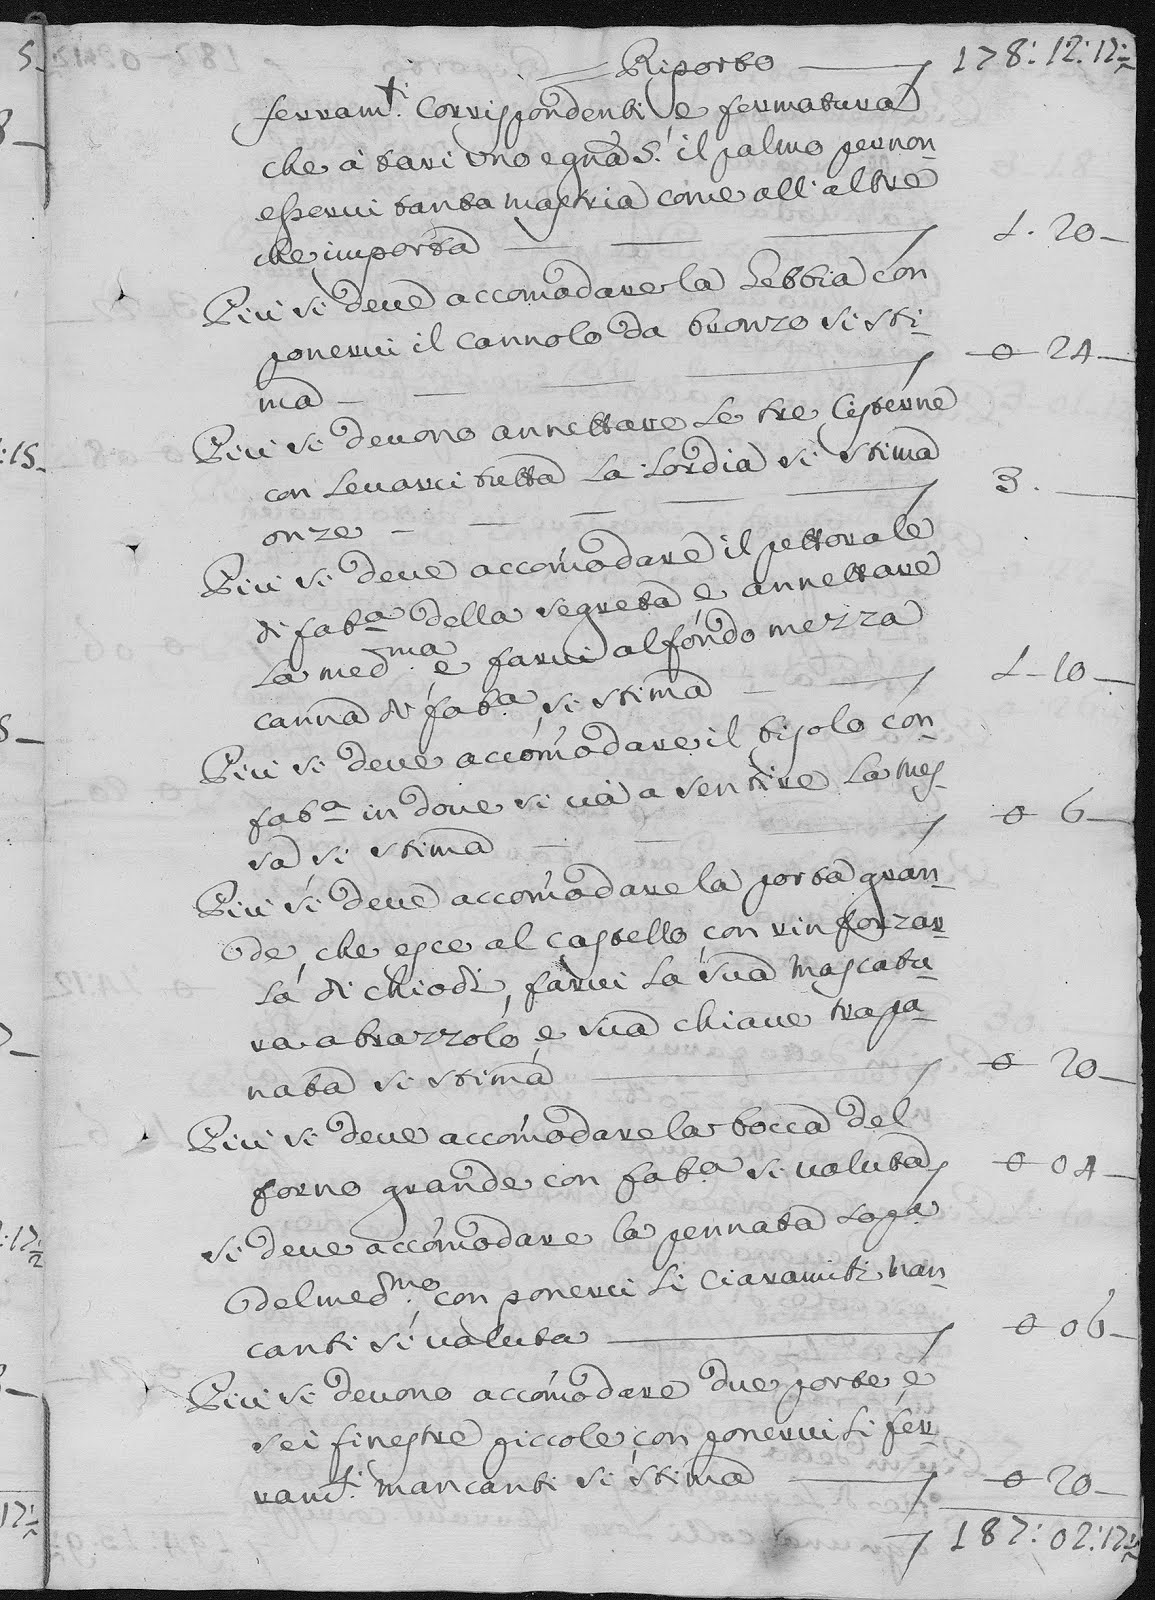 Riporto 178:12:17½
ferram.ti Corrispondenti e fermatura
che à tarì uno e gna 5: il palmo per non
esservi tanta mastria come all'altre
che importa 1. 20
Più si deve accomodare la Gebbia con
ponervi il Cannolo da bronzo si sti-
ma 0 24
Più si devono annettare le tre Cisterne
con levarci tutta la lordia si stima
onze 3.
Più si deve accomodare il pettorale
di fab.a della segreta e annettare
la med.ma e farvi al fondo mezza
canna di fab.a si stima 1-10
Più si deve accomodare il bisolo con
fab.a in dove si và a sentire la mes-
sa si stima 0 6
Più si deve accomodare la porta gran-
de, che esce al castello con rinforzar-
la di chiodi, farvi la sua mascatu-
ra a brazzolo e sua chiave trapa-
nata si stima 0 20
Più si deve accomodare la bocca del
forno grande con fab.a si valuta 0 04
si deve accomodare la pennata sop.a
del med.mo con ponerci li Ciaramiti man-
canti si valuta 0 06
Più si devono accomodare due porte e
sei finestre piccole con ponervi li fer-
ram.ti mancanti si stima 0 20
187:02:17½